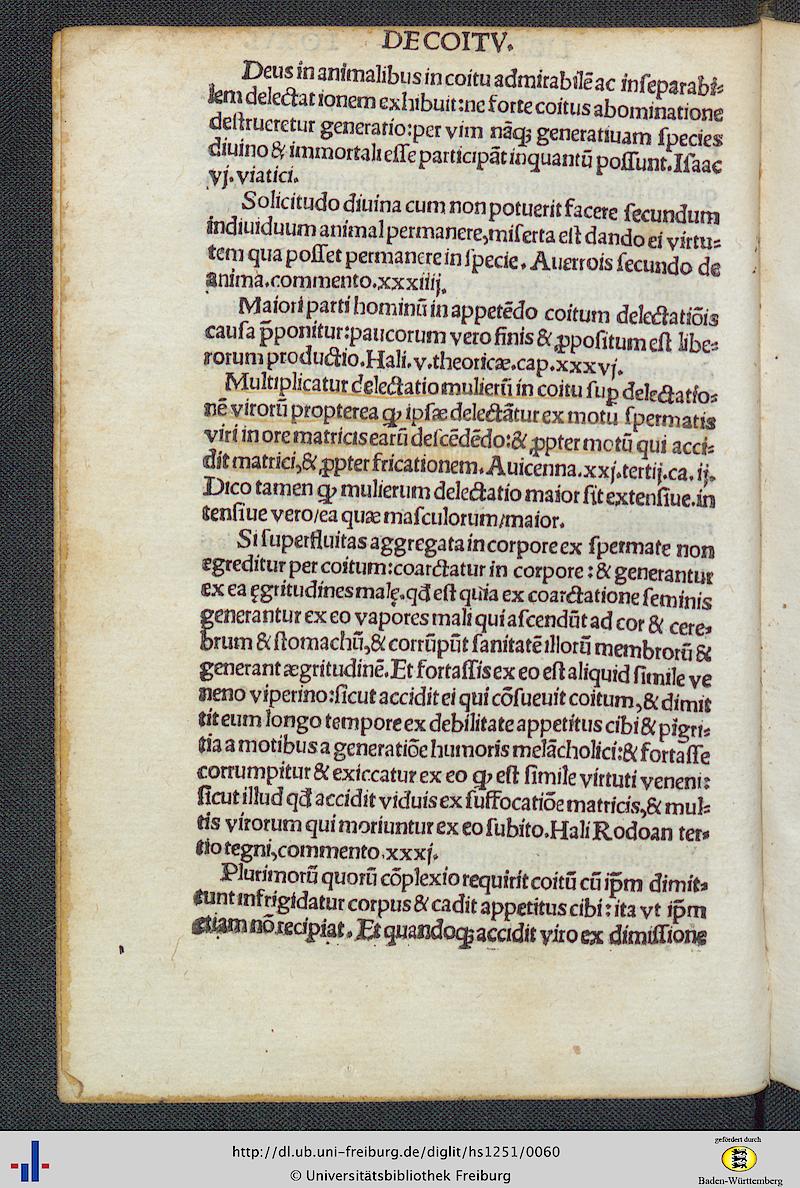 DE COITV.
Deus in animalibus in coitu admirabilē ac inſeparabi-
lem delectationem exhibuit:ne forte coitus abominatione
deſtrueretur generatio:per vim nāqꝫ generatiuam ſpecies
diuino & immortali eſſe participāt inquantū poſſunt. Iſaac
vj. viatici.
Solicitudo diuina cum non potuerit facere ſecundum
indiuiduum animal permanere,miſerta eſt dando ei virtu-
tem qua poſſet permanere in ſpecie. Auerrois ſecundo de
anima.commento.xxxiiij.
Maiori parti hominū in appetēdo coitum delectatiōis
cauſa p̄ponitur:paucorum vero finis & ꝓpoſitum eſt libe-
rorum productio.Hali.v.theoricæ.cap.xxxvj.
Multiplicatur delectatio mulierū in coitu ſuꝑ delectatio-
nē virorū propterea qꝫ ipſæ delectātur ex motu ſpermatis
viri in ore matricis earū deſcēdēdo:& ꝓpter motū qui acci-
dit matrici,& ꝓpter fricationem. Auicenna.xxj.tertij.ca.ij.
Dico tamen qꝫ mulierum delectatio maior ſit extenſiue.in
tenſiue vero/ea quæ maſculorum/maior.
Si ſuperfluitas aggregata in corpore ex ſpermate non
egreditur per coitum:coarctatur in corpore:& generantur
ex ea ęgritudines malę.qđ eſt quia ex coarctatione ſeminis
generantur ex eo vapores mali qui aſcendūt ad cor & cere-
brum & ſtomachū,& corrūpūt ſanitatē illorū membrorū &
generant ægritudinē.Et fortaſſis ex eo eſt aliquid ſimile ve
neno viperino:ſicut accidit ei qui cōſueuit coitum,& dimit
tit eum longo tempore ex debilitate appetitus cibi & pigri-
tia a motibus a generatiōe humoris melācholici:& fortaſſe
corrumpitur & exiccatur ex eo qꝫ eſt ſimile virtuti veneni:
ſicut illud qđ accidit viduis ex ſuffocatiōe matricis,& mul-
tis virorum qui moriuntur ex eo ſubito.Hali Rodoan ter-
tio tegni,commento.xxxj.
Plurimorū quorū cōplexio requirit coitū cū ip̄m dimit-
tunt infrigidatur corpus & cadit appetitus cibi:ita vt ip̄m
etiam nō recipiat. Et quandoqꝫ accidit viro ex dimiſſione
http://dl.ub.uni-freiburg.de/diglit/hs1251/0060
© Universitätsbibliothek Freiburg
gefördert durch
Baden-Württemberg